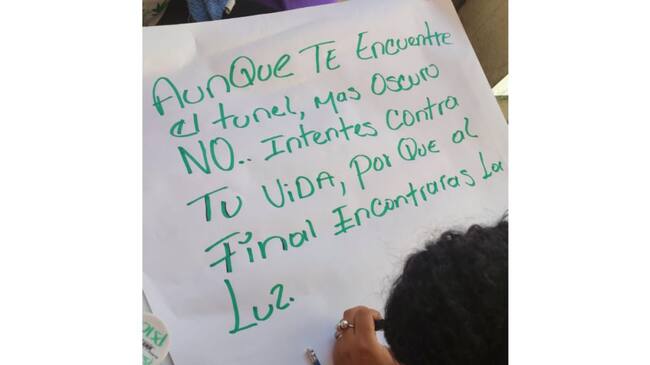 AunQue TE Encuentre
el tunel, mas oscuro
NO.. Intentes contra
TU VIDA, Por Que al
Final Incontraras La
Luz.